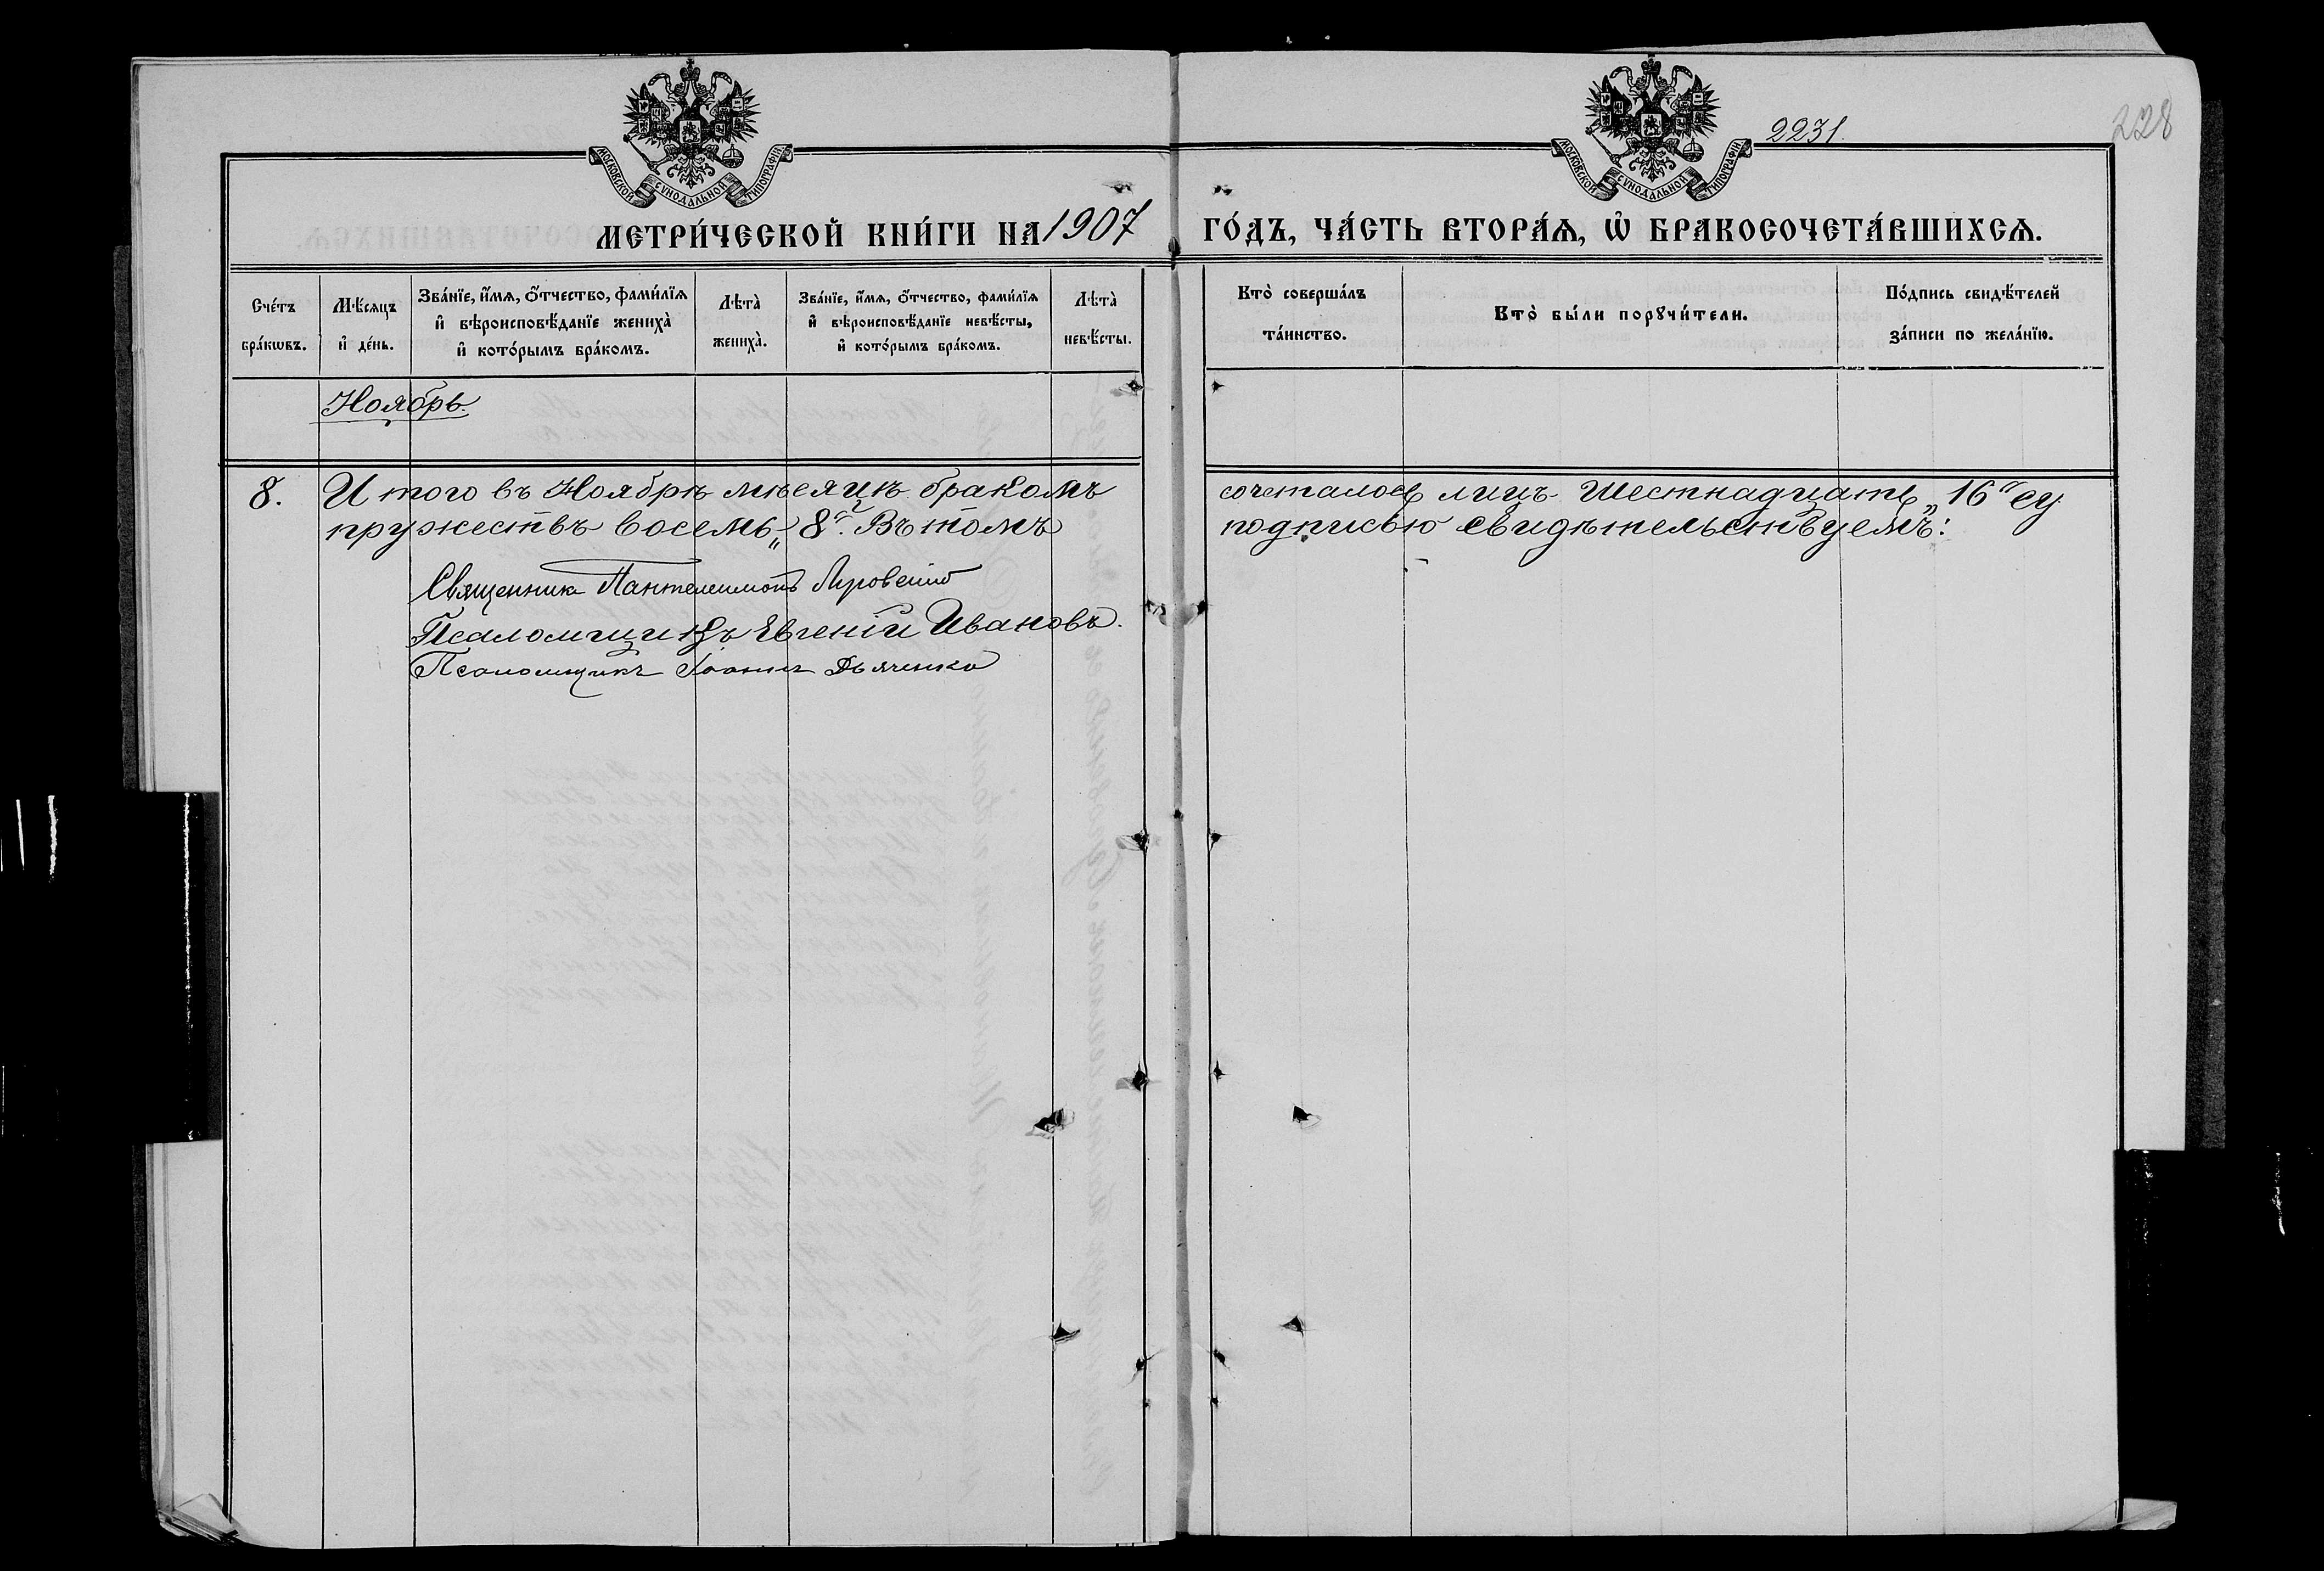 МОСКОВСКОЙ СУНОДАЛЬНОЙ ТИПОГРАФІИ
МОСКОВСКОЙ СУНОДАЛЬНОЙ ТИПОГРАФІИ
2231.
228
МЕТРИ́ЧЕСКОЙ КНИ́ГИ НА 1907 ГО́ДЪ, ЧА́СТЬ ВТОРА́Ѧ, Ѽ БРАКОСОЧЕТА́ВШИХСѦ.
Сче́тъ
бра́кѡвъ.
Мѣ́сѧцъ
и҆ де́нь.
Зва́нїе, и҆́мѧ, ѻ҆́тчество, фами́лїѧ
и҆ вѣроисповѣ́данїе жениха̀
и҆ кото́рымъ бра́комъ.
Лѣта̀
жениха̀.
Зва́нїе, и҆́мѧ, ѻ҆́тчество, фами́лїѧ
и҆ вѣроисповѣ́данїе невѣ́сты,
и҆ кото́рымъ бра́комъ.
Лѣта̀
невѣ́сты.
Кто̀ соверша́лъ
та́инство.
Кто̀ бы́ли порꙋчи́тели.
По́дпись свидѣ́телей
за́писи по жела́нїю.
Ноябрь.
8. Итого въ Ноябрѣ мѣсяцѣ бракомъ сочеталось лицъ шестнадцать „16" су
пружествъ восемь „8". Въ томъ подписью свидѣтельствуемъ:
Священникъ Пантелеимонъ
Псаломщикъ Евгеній Ивановъ.
Псаломщикъ Іоаннъ Дьяченко